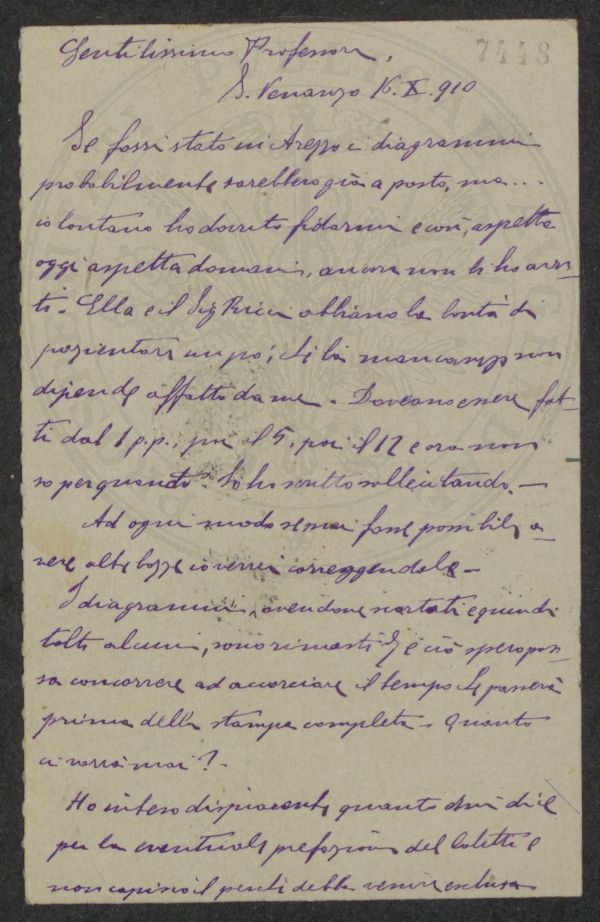 Gentilissimo Professore,
7448
S. Venanzo 16. X. 910
Se fossi stato in Arezzo i diagrammi
probabilmente sarebbero già a posto, ma...
io lontano ho dovuto fidarmi e così, aspetta
oggi aspetta domani, ancora non li ho avu-
ti. Ella e il Sig Ricci abbiano la bontà di
pazientare un po', chè la mancanza non
dipende affatto da me. Doveano essere fat-
ti dal 1 p.p., poi il 5, poi il 12 e ora non
so per quando. Io ho scritto sollecitando. —
Ad ogni modo se mai fosse possibile a-
vere altre bozze io verrei correggendole —
I diagrammi, avendone scartati e quindi
tolti alcuni, sono rimasti e ciò spero pos-
sa concorrere ad accorciare il tempo che passerà
prima della stampa completa. Quanto
ci vorrà mai? -
Ho inteso dispiacente quanto mi dice
per la eventuale prefazione del e
non capisco il perchè debba venire esclusa